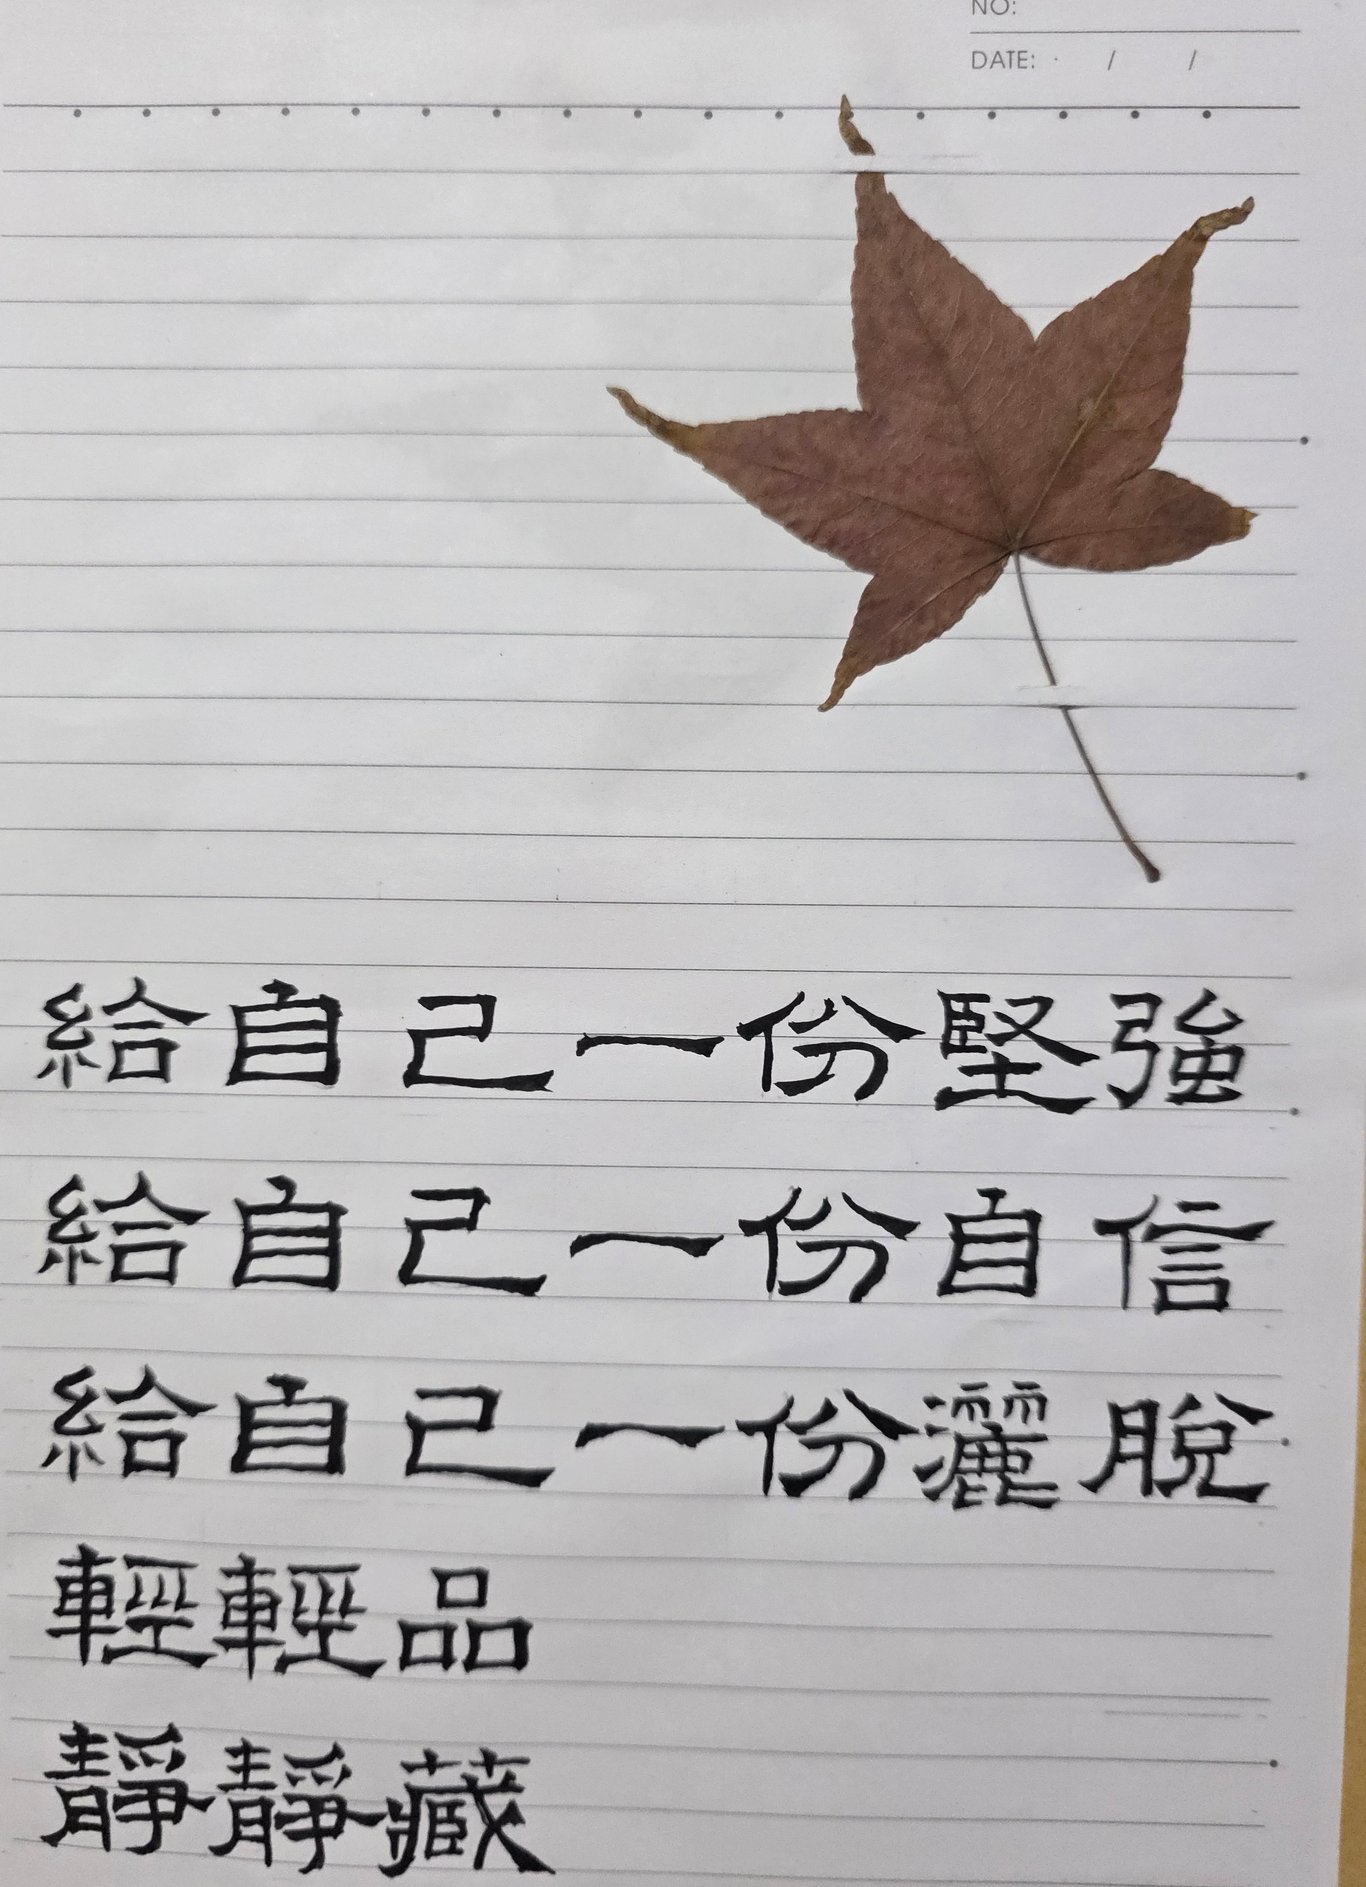 NO:
DATE: / /
給自己一份堅強
給自己一份自信
給自己一份灑脫
輕輕品
靜靜藏